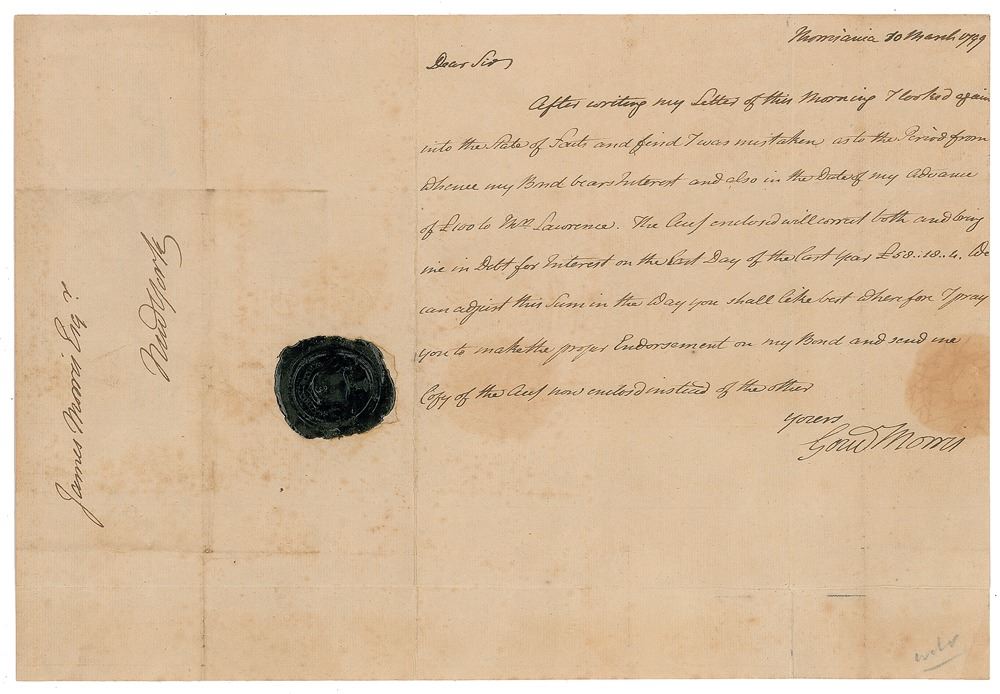 Morrisania 10 March 1799
Dear Sir
After writing my Letter of this Morning I looked again
into the State of Facts and find I was mistaken as to the Period from
whence my Bond bears Interest and also in the Date of my Advance
of £100 to Mrs Lawrence. The Acct enclosed will correct both and bring
me in Debt for Interest on the last Day of the last Year £58..18..4. We
can adjust this Sum in the Way you shall like best wherefore I pray
you to make the proper Endorsement on my Bond and send me
Copy of the Acct now enclosed instead of the other
yours
Gouv Morris
James Morris Esqr
New York